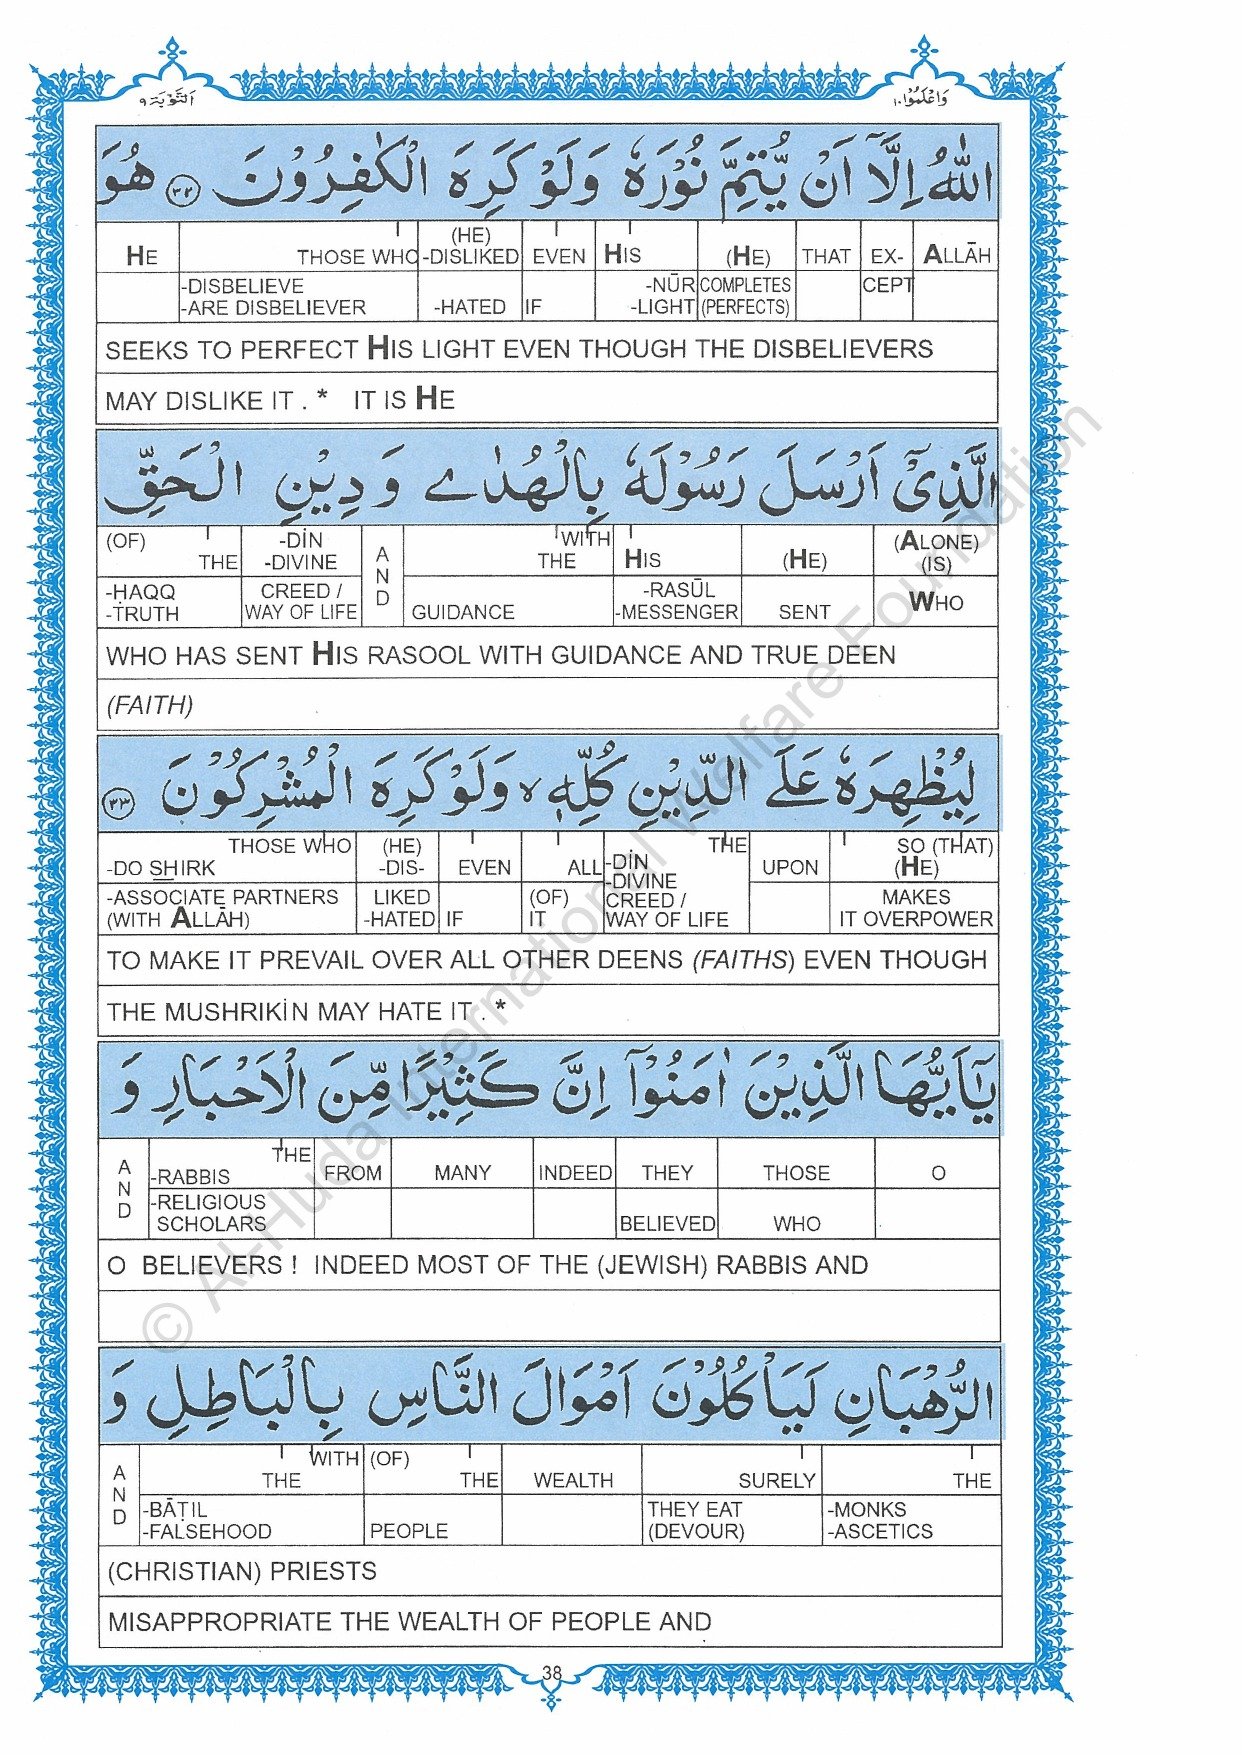 التَّوْبَة ٩
وَاعْلَمُوْا ١٠
اللّٰهُ اِلَّاۤ اَنْ يُّتِمَّ نُوْرَهٗ وَلَوْ كَرِهَ الْكٰفِرُوْنَ ﴿٣٢﴾ هُوَ
HE THOSE WHO (HE) -DISLIKED EVEN HIS (HE) THAT EX- ALLĀH
-DISBELIEVE -ARE DISBELIEVER -HATED IF -NŪR -LIGHT COMPLETES (PERFECTS) CEPT
SEEKS TO PERFECT HIS LIGHT EVEN THOUGH THE DISBELIEVERS
MAY DISLIKE IT . * IT IS HE
الَّذِيْۤ اَرْسَلَ رَسُوْلَهٗ بِالْهُدٰى وَ دِيْنِ الْحَقِّ
(OF) THE -DİN -DIVINE AND WITH THE HIS (HE) (ALONE) (IS)
-HAQQ -TRUTH CREED / WAY OF LIFE GUIDANCE -RASŪL -MESSENGER SENT WHO
WHO HAS SENT HIS RASOOL WITH GUIDANCE AND TRUE DEEN
(FAITH)
لِيُظْهِرَهٗ عَلَى الدِّيْنِ كُلِّهٖ ۙ وَلَوْ كَرِهَ الْمُشْرِكُوْنَ ﴿٣٣﴾
THOSE WHO -DO SHIRK (HE) -DIS- EVEN ALL THE -DİN -DIVINE UPON SO (THAT) (HE)
-ASSOCIATE PARTNERS (WITH ALLĀH) LIKED -HATED IF (OF) IT CREED / WAY OF LIFE MAKES IT OVERPOWER
TO MAKE IT PREVAIL OVER ALL OTHER DEENS (FAITHS) EVEN THOUGH
THE MUSHRIKİN MAY HATE IT . *
يٰۤاَيُّهَا الَّذِيْنَ اٰمَنُوْۤا اِنَّ كَثِيْرًا مِّنَ الْاَحْبَارِ وَ
AND THE -RABBIS FROM MANY INDEED THEY THOSE O
-RELIGIOUS SCHOLARS BELIEVED WHO
O BELIEVERS ! INDEED MOST OF THE (JEWISH) RABBIS AND
الرُّهْبَانِ لَيَاْكُلُوْنَ اَمْوَالَ النَّاسِ بِالْبَاطِلِ وَ
AND WITH THE (OF) THE WEALTH SURELY THE
-BĀṬIL -FALSEHOOD PEOPLE THEY EAT (DEVOUR) -MONKS -ASCETICS
(CHRISTIAN) PRIESTS
MISAPPROPRIATE THE WEALTH OF PEOPLE AND
38
© Al-Huda International Welfare Foundation